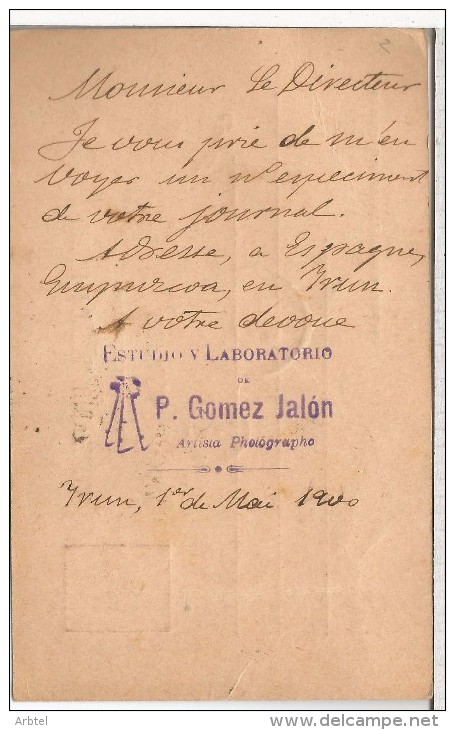 Monsieur Le Directeur
Je vous prie de m'en
voyer un nº especiment
de votre journal.
Adresse, a Espagne,
Guipuzcoa, en Irun.
A votre devoue
ESTUDIO Y LABORATORIO
DE
P. Gomez Jalón
Artista Photographo
Irun, 1er de Mai 1900
Arbtel
www.delcampe.net